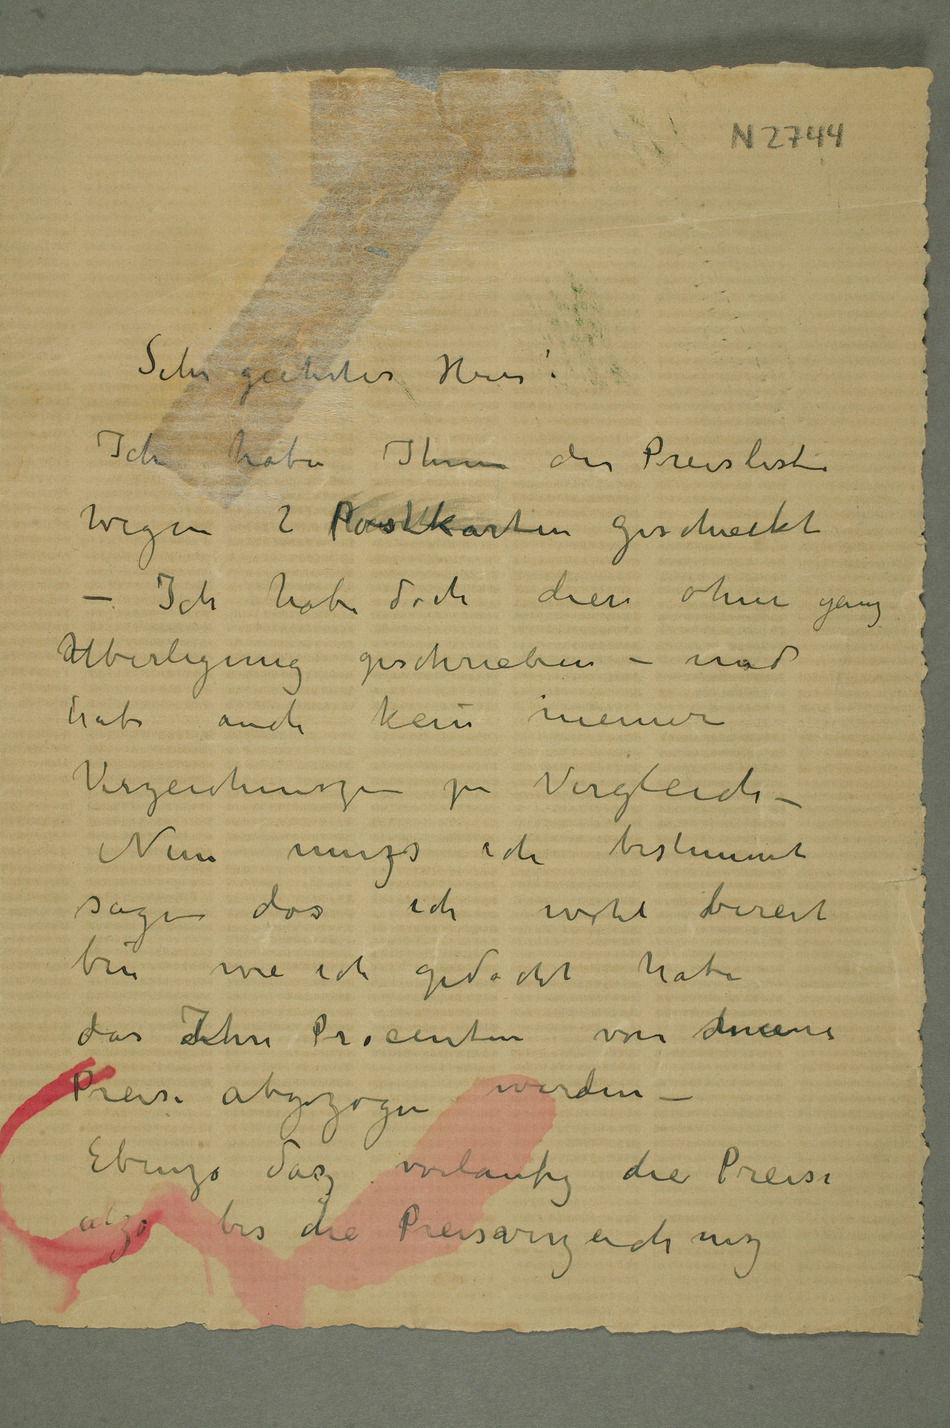 N 2744
Sehr geehrter Herr!
Ich habe Ihnen der Preisliste
wegen 2 Postkarten geschickt
– Ich habe doch diese ohne ganz
Uberlegung geschrieben – und
habe auch kein meiner
Verzeichniszen zu Vergleich –
Nun muszs ich bestimmt
sagen das ich wohl bereit
bin wie ich gedacht habe
das Ihre Procenten von
Preise abgezogen werden –
Ebenzo dasz vorläufig die Preise
alzo bis die Preisverzeichnisz